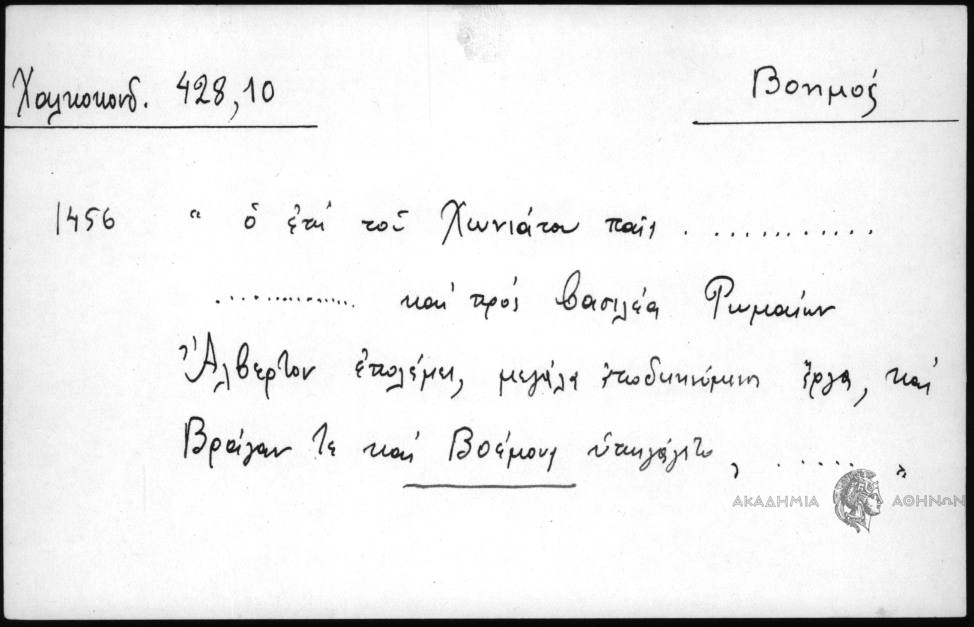 Χαλκοκονδ. 428,10
Βοημός
1456 " ὁ ἐπὶ τοῦ Χωνιάτου παῖς ............
.............. καὶ πρὸς βασιλέα Ῥωμαίων
Ἀλβέρτον ἐπολέμει, μεγάλα ἀποδεικνύμενος ἔργα, καὶ
Βράγαν τε καὶ Βοέμους ὑπηγάγετο, ...... "
ΑΚΑΔΗΜΙΑ ΑΘΗΝΩΝ